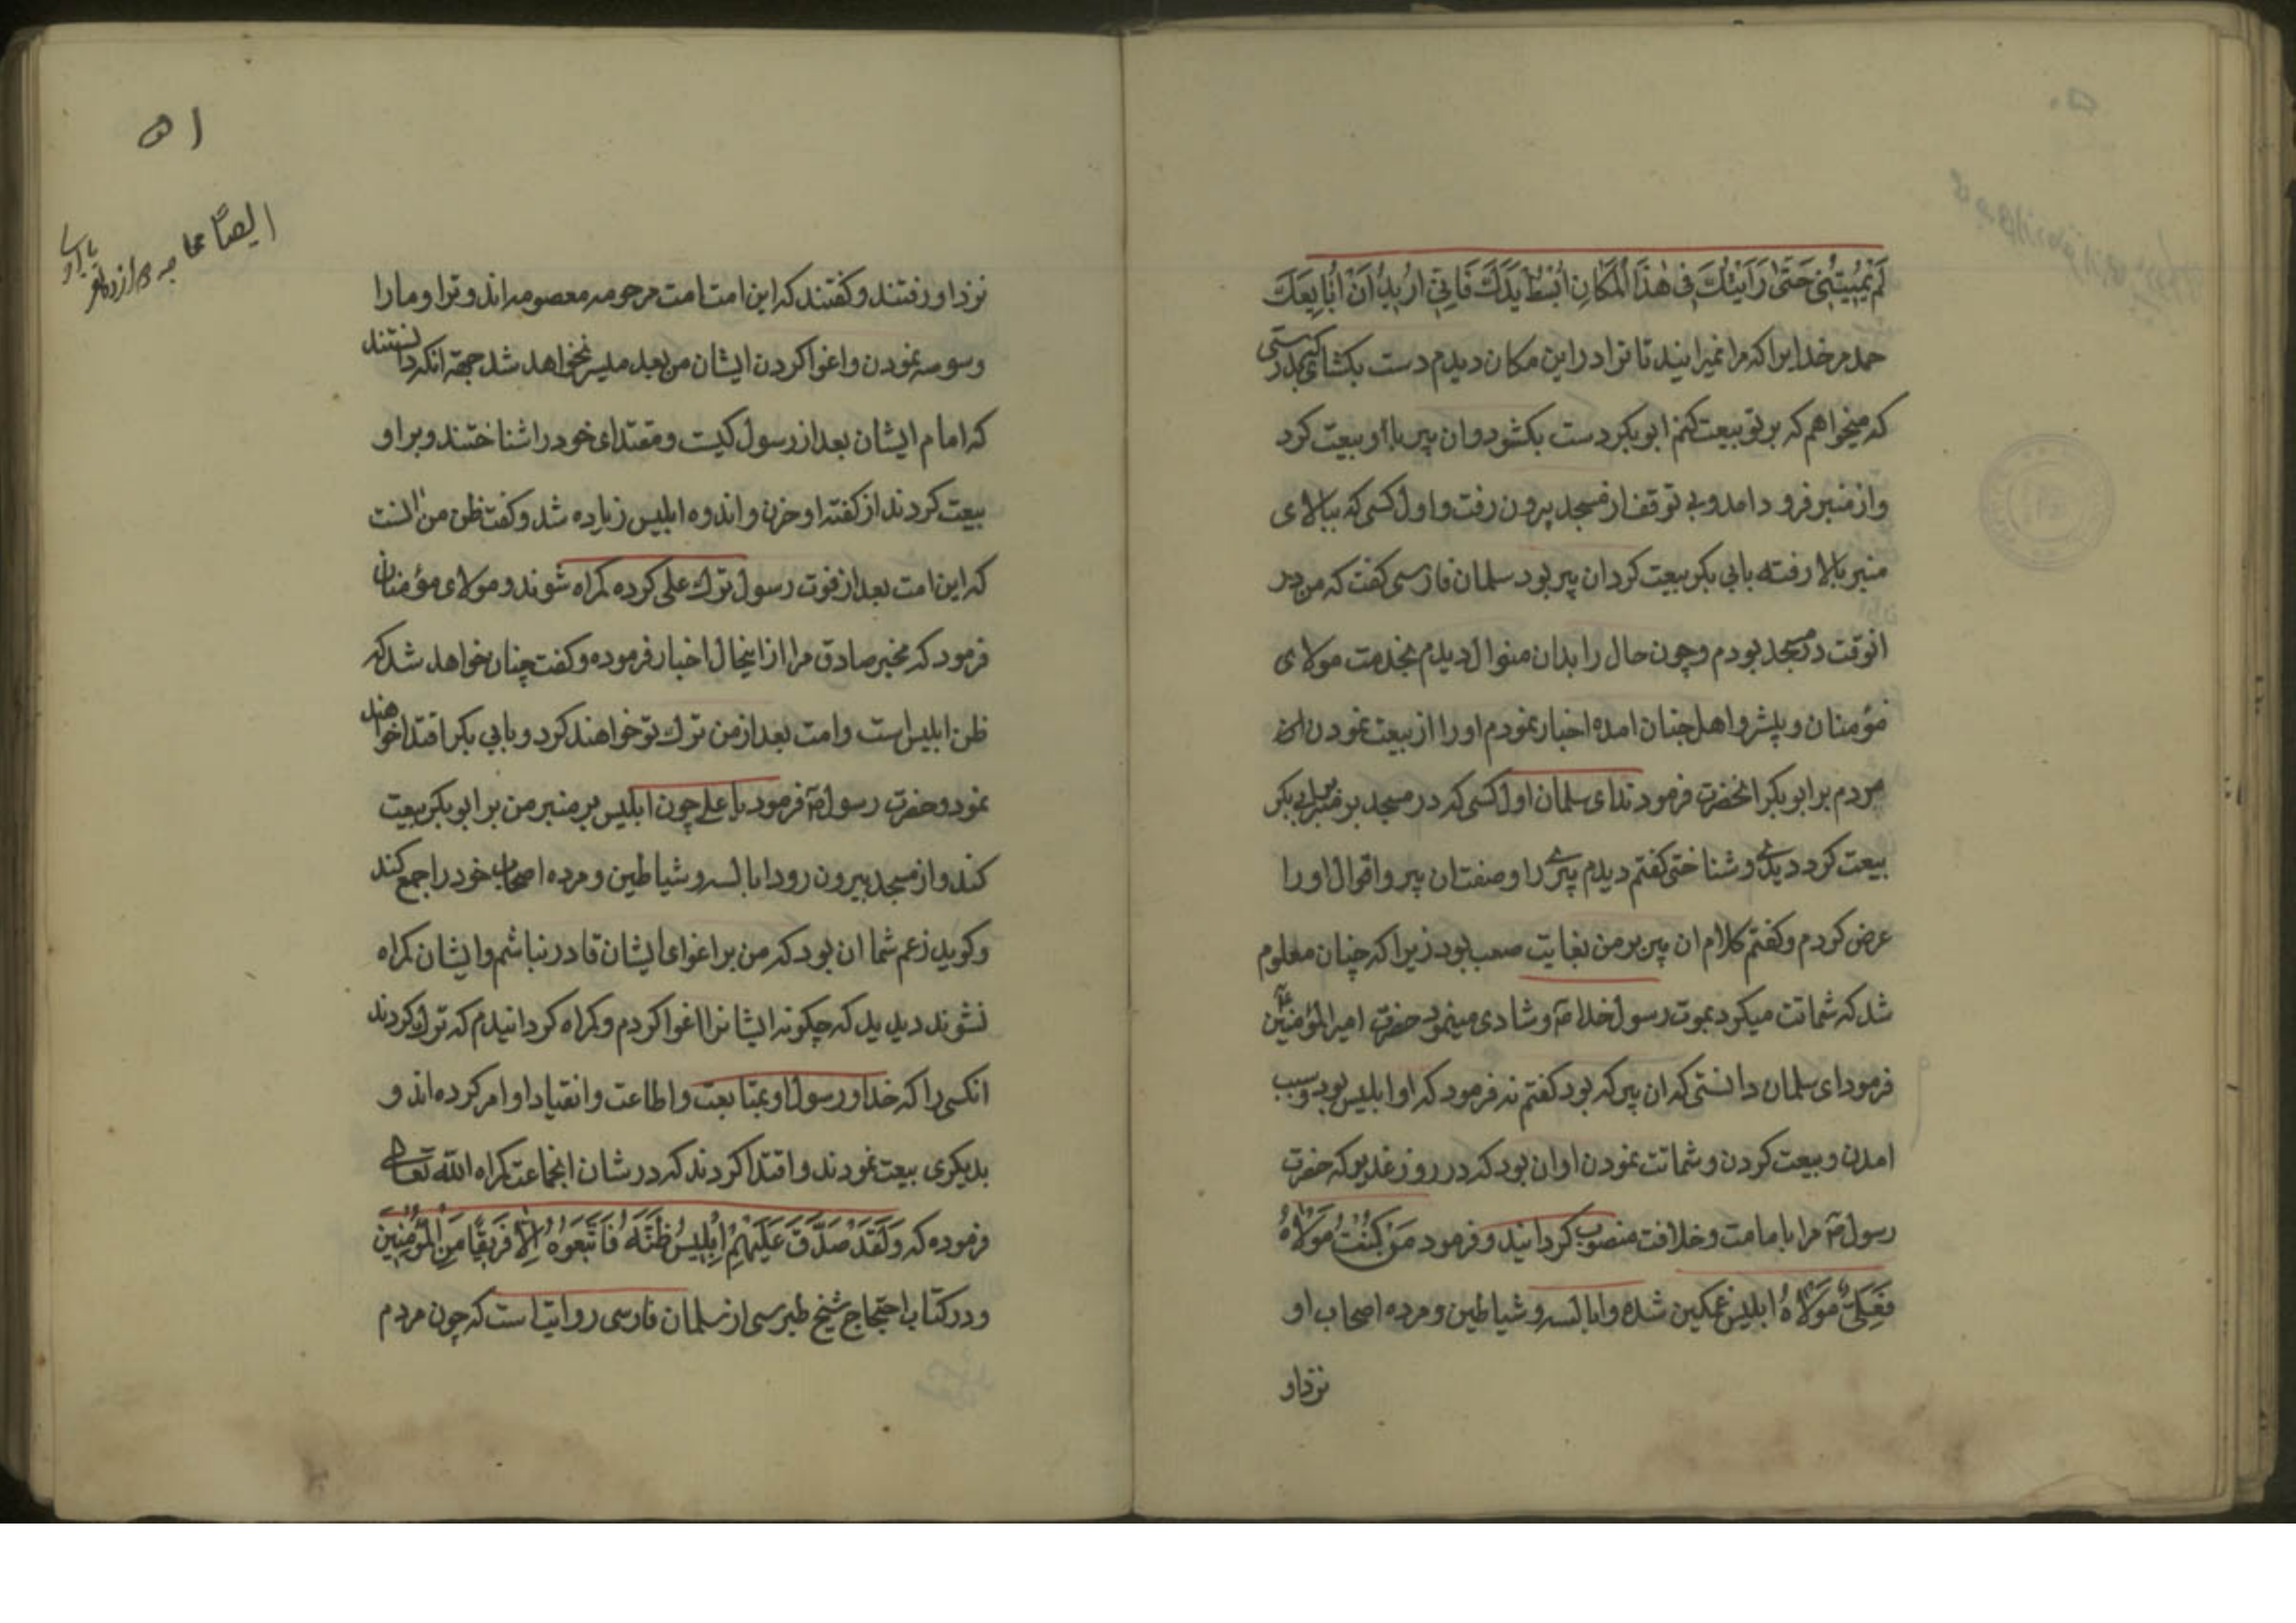 لَمْ يُمِيتْنِي حَتّٰى رَأَيْتُكَ فِى هٰذَا الْمَكَانِ اُبْسُطْ يَدَكَ فَاِنِّي اُرِيدُ اَنْ اُبَايِعَكَ
حمد مر خدایرا که مرا نمیرانید تا ترا در این مکان دیدم دست بکشای بدرستی
که میخواهم که بر تو بیعت کنم ابو بکر دست بکشود و ان پیر با او بیعت کرد
و از منبر فرود امد و بی توقف از مسجد بیرون رفت و اول کسی که ببالای
منبر بالا رفته بابی بکر بیعت کرد ان پیر بود سلمان فارسی کفت که من در
انوقت در مسجد بودم و چون حال را بدان منوال دیدم بخدمت مولای
مؤمنان و پیشرو اهل جنان امده اخبار نمودم او را از بیعت نمودن ان
مردم بر ابو بکر انحضرت فرمودند ای سلمان اول کسی که در مسجد بر منبر بابی بکر
بیعت کرد دیدی و شناختی کفتم دیدم پیری را و صفت ان پیر و اقوال او را
عرض کردم و کفتم کلام ان پیر بر من بغایت صعب بود زیرا که چنان معلوم
شد که شماتت میکرد بموت رسول خدا ص و شادی مینمود حضرت امیر المؤمنین ع
فرمود ای سلمان دانستی که ان پیر که بود کفتم نه فرمود که او ابلیس بود و سبب
امدن و بیعت کردن و شماتت نمودن او ان بود که در روز غدیر که حضرت
رسول ص مرا بامامت و خلافت منصوب کردانید و فرمود مَنْ كُنْتُ مَوْلَاهُ
فَعَلِيٌّ مَوْلَاهُ ابلیس غمکین شده و ابالسه و شیاطین و مرده اصحاب او
نزد او
۵۱
ایضا
نزد او رفتند و کفتند که این امت امت مرحومه معصومه اند و ترا و ما را
وسوسه نمودن و اغوا کردن ایشان من بعد میسر نخواهد شد جهة انکه دانستند
که امام ایشان بعد از رسول کیست و مقتدای خود را شناختند و بر او
بیعت کردند از کفته او حزن و اندوه ابلیس زیاده شد و کفت ظن من انست
که این امت بعد از فوت رسول ترك علی کرده کمراه شوند و مولای مؤمنان
فرمود که مخبر صادق مرا از اینحال اخبار فرموده و کفت چنان خواهد شد که
ظن ابلیس است و امت بعد از من ترك تو خواهند کرد و بابی بکر اقتدا خواهند
نمود و حضرت رسول ص فرمود یا علی چون ابلیس بر منبر من بر ابو بکر بیعت
کند و از مسجد بیرون رود ابالسه و شیاطین و مرده اصحاب خود را جمع کند
و کوید زعم شما ان بود که من بر اغوای ایشان قادر نباشم و ایشان کمراه
نشوند دیدید که چکونه ایشانرا اغوا کردم و کمراه کردانیدم که ترك کردند
انکسی را که خدا و رسول او بمتابعت و اطاعت و انقیاد او امر کرده اند و
بدیکری بیعت نمودند و اقتدا کردند که در شان انجماعت کمراه الله تعالی
فرموده که وَلَقَدْ صَدَّقَ عَلَيْهِمْ اِبْلِيسُ ظَنَّهُ فَاتَّبَعُوهُ اِلَّا فَرِيقًا مِنَ الْمُؤْمِنِينَ
و در کتاب احتجاج شیخ طبرسی از سلمان فارسی روایت است که چون مردم